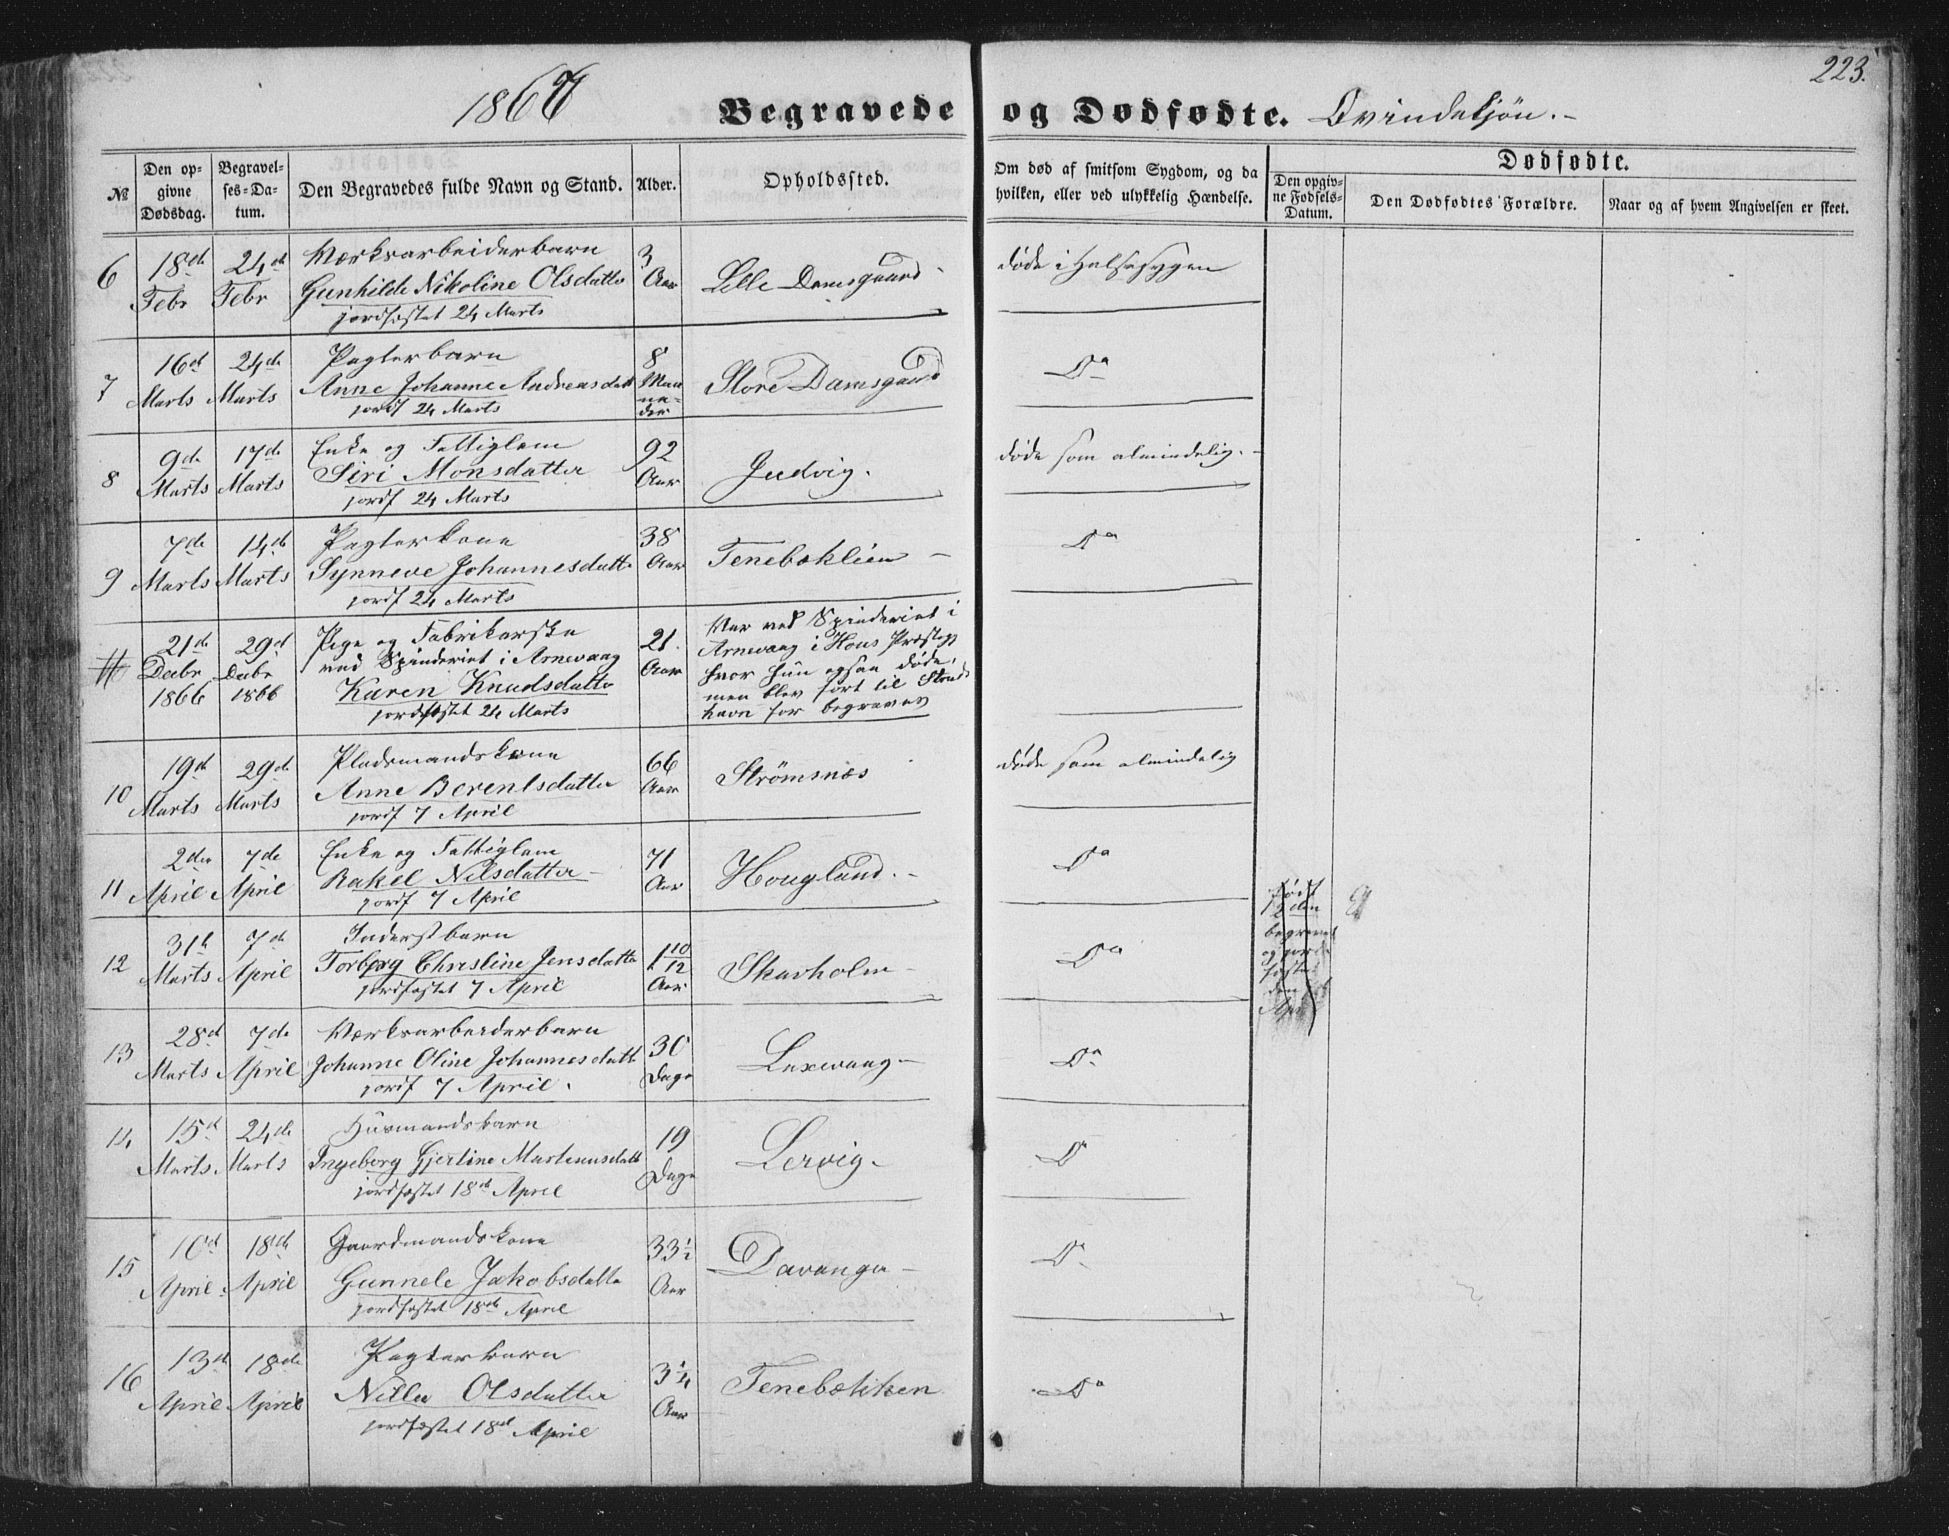 1867
Begravede og Dødfødte. Qvindekjön.
223.
№
Den op-
givne
Dødsdag.
Begravel-
ses-Da-
tum.
Den Begravedes fulde Navn og Stand.
Alder.
Opholdssted.
Om død af smitsom Sygdom, og da
hvilken, eller ved ulykkelig Hændelse.
Dødfødte.
Den opgiv-
ne Fødsels-
Datum.
Den Dødfødtes Forældre.
Naar og af hvem Angivelsen er skeet.
6
18de
Febr
24de
Febr
Værksarbeiderbarn
Gunhilde Nikoline Olsdatter
jordfæstet 24 Marts
3
Aar
Lille Damsgaard
døde i Halssygen
7
16de
Marts
24de
Marts
Pagterbarn
Anne Johanne Andreasdatt
jordf 24 Marts
8
Maa
ne-
der
Store Damsgaard
Do
8
9de
Marts
17de
Marts
Enke og Fattiglem
Siri Monsdatter
jordf 24 Marts
92
Aar
Judvig.
døde som almindelig.
9
7de
Marts
14de
Marts
Pagterkone
Synneve Johannesdatter
jordf 24 Marts
38
Aar
Teneboklien
Do
21de
Decbr
1866
29de
Decbr
1866
Pige og Fabrikarske
ved Spinderiet i Arnevaag
Karen Knudsdatter
jordfæstet 24 Marts
21
Aar
Var ved Spinderiet i
Arnevaag i Hous Præstegj
hvor hun ogsaa døde,
men blev ført til
havn for begraves
10
19de
Marts
29de
Marts
Pladsmandskone
Anne Berentsdatter
jordf 7 April
66
Aar
Strömsnæs
døde som almindelig
11
2den
April
7de
April
Enke og Fattiglem
Rakel Nilsdatter
jordf 7 April
71
Aar
Houglund.
Do
12
31te
Marts
7de
April
Inderstbarn
Torborg Christine Jensdatter
jordfæstet 7 April
1 10/12
Aar
Skarholm
Do
født
den
begravet
og jord
fæstet
den
Apr
13
28de
Marts
7de
April
Værksarbeiderbarn
Johanne Oline Johannesdatt
jordf 7 April.
30
Dage
Laxevaag
Do
14
15de
Marts
24de
Marts
Husmandsbarn
Ingeborg Gjertine Martinusdatt
jordfæstet 18de April
19
Dage
Lervig
Do
15
10de
April
18de
April
Gaardmandskone
Gunnele Jakobsdatter
jordfæstet 18de April
33 1/2
Aar
Davanger
Do
16
13de
April
18de
April
Pagterbarn
Nille Olsdatter
jordfæstet 18de April
3 1/4
Aar
Tenebækken
Do